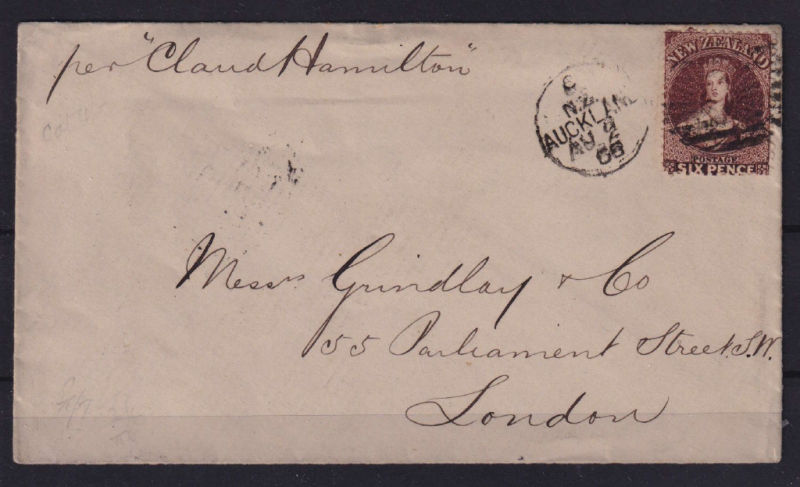 per "Claud Hamilton"
NEW ZEALAND
POSTAGE
SIX PENCE
N.Z.
AUCKLAND
AU 2
66
Messrs Grindlay & Co
55 Parliament Street. S.W.
London